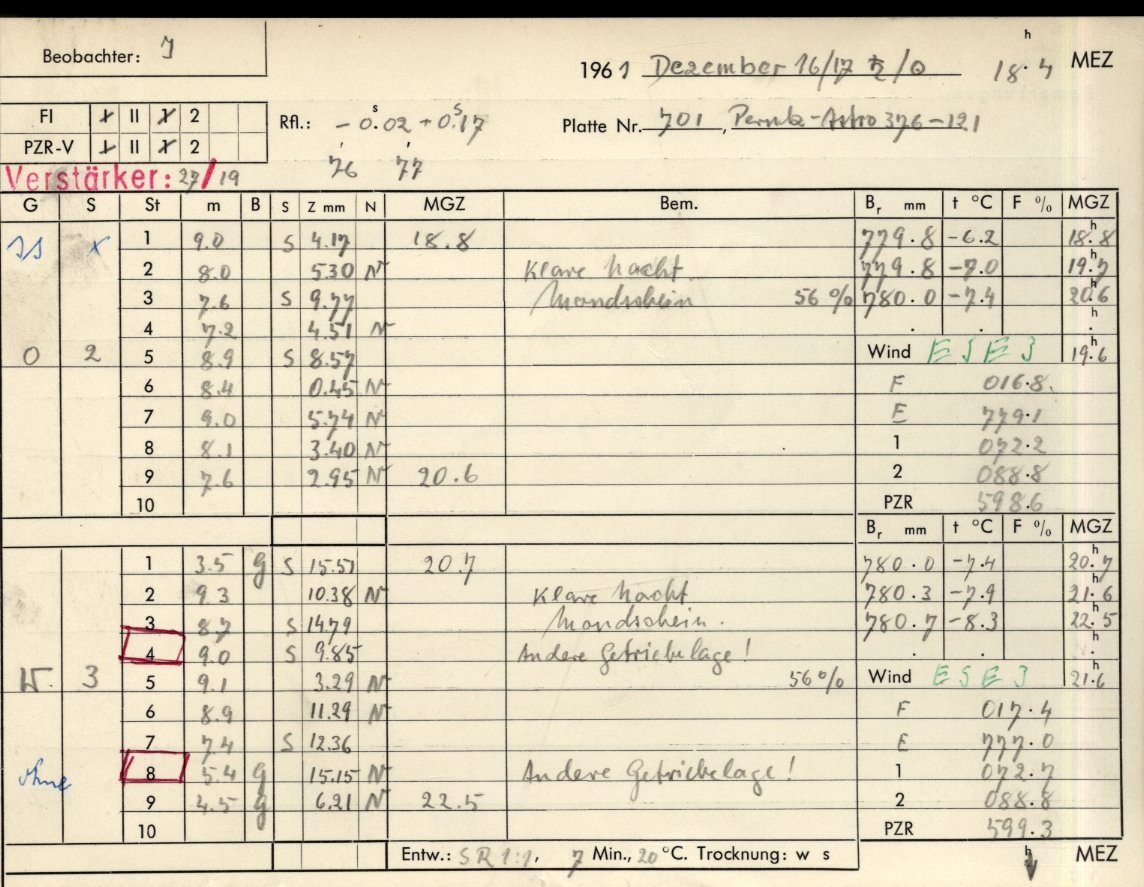 Beobachter: J
1961 Dezember 16/17 ♄/⊙ 18.4 h MEZ
FI I II 1 2
Rfl.: -0.02 s +0.17 s
Platte Nr. 701, Perutz-Astro 376-121
PZR-V I II 1 2
76 77
Verstärker: 27/19
G S St m B S Z mm N MGZ Bem. Br mm t °C F % MGZ
x 1 9.0 S 4.17 18.8 779.8 -6.2 18.8 h
2 8.0 5.30 N Klare Nacht 779.8 -7.0 19.7 h
3 7.6 S 9.77 Mondschein 56% 780.0 -7.4 20.6 h
4 7.2 4.51 N . . . h
0 2 5 8.9 S 8.57 Wind 19.6 h
6 8.4 0.45 N F 016.8
7 9.0 5.74 N E 779.1
8 8.1 3.40 N 1 072.2
9 7.6 2.95 N 20.6 2 088.8
10 PZR 598.6
Br mm t °C F % MGZ
1 3.5 g S 15.57 20.7 780.0 -7.4 20.7 h
2 9.3 10.38 N Klare Nacht 780.3 -7.9 21.6 h
3 8.7 S 14.79 Mondschein. 780.7 -8.3 22.5 h
4 9.0 S 9.85 Andere Getriebelage! . . . h
3 5 9.1 3.29 N 56% Wind 21.6 h
6 8.9 11.29 N F 017.4
7 7.4 S 12.36 E 777.0
ohne 8 5.4 g 15.15 N Andere Getriebelage! 1 072.7
9 4.5 g 6.21 N 22.5 2 088.8
10 PZR 599.3
Entw.: SR 1:1, 7 Min., 20 °C. Trocknung: w s h MEZ